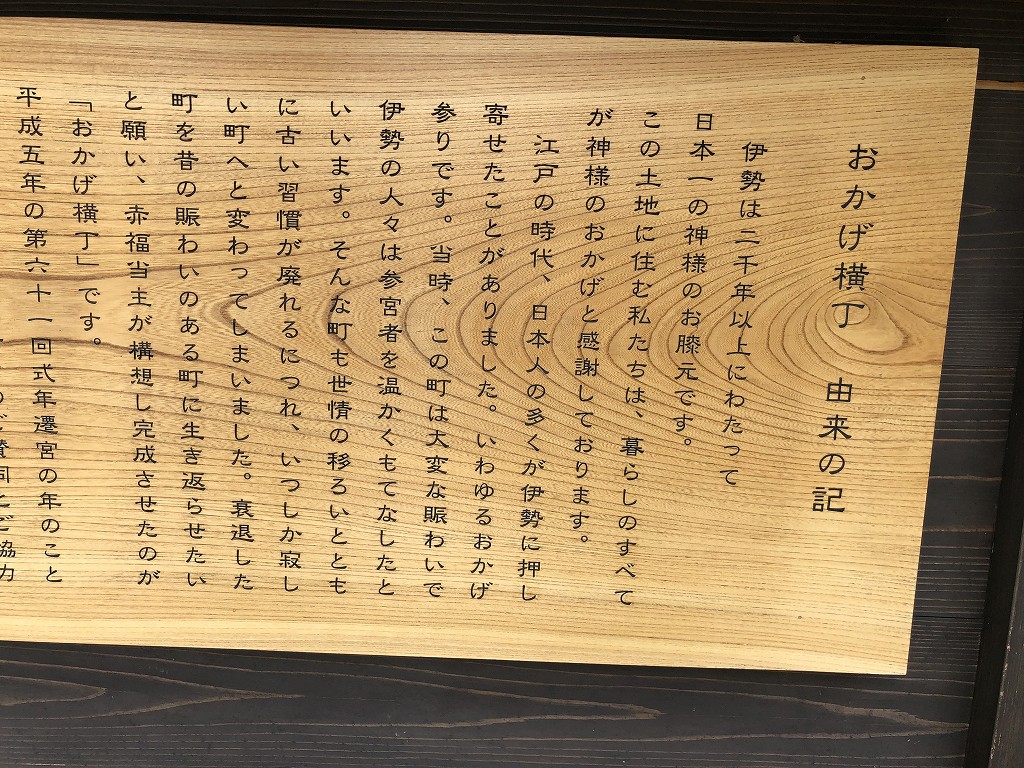 おかげ横丁 由来の記
伊勢は二千年以上にわたって
日本一の神様のお膝元です。
この土地に住む私たちは、暮らしのすべて
が神様のおかげと感謝しております。
江戸の時代、日本人の多くが伊勢に押し
寄せたことがありました。いわゆるおかげ
参りです。当時、この町は大変な賑わいで
伊勢の人々は参宮者を温かくもてなしたと
いいます。そんな町も世情の移ろいととも
に古い習慣が廃れるにつれ、いつしか寂し
い町へと変わってしまいました。衰退した
町を昔の賑わいのある町に生き返らせたい
と願い、赤福当主が構想し完成させたのが
「おかげ横丁」です。
平成五年の第六十一回式年遷宮の年のこと
ご賛同とご協力